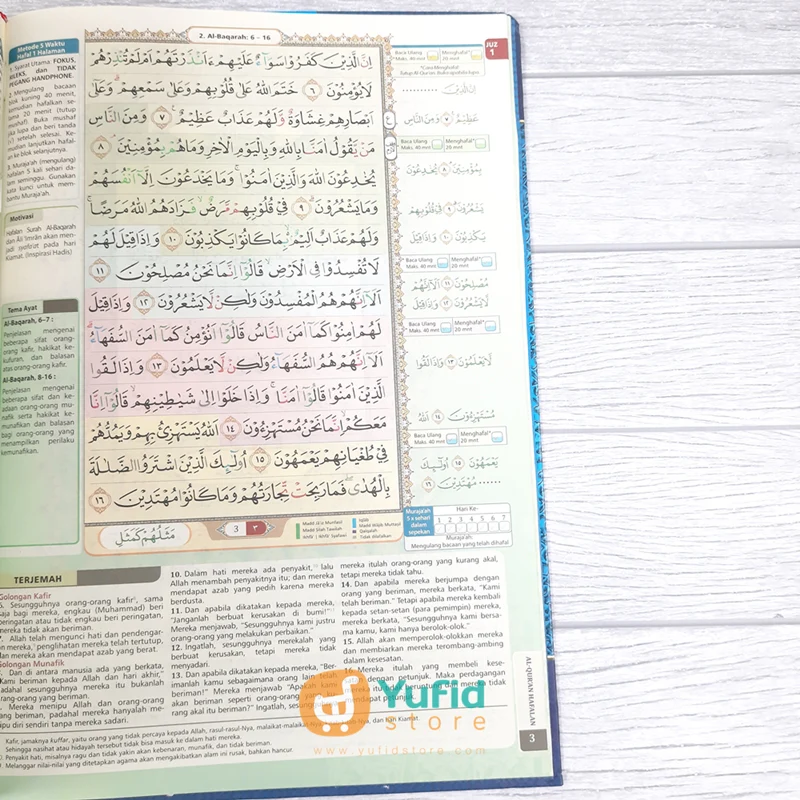 2. Al-Baqarah: 6 - 16
JUZ
1
Metode 5 Waktu
Hafal 1 Halaman
1. Syarat Utama: FOKUS,
RILEKS, dan TIDAK
PEGANG HANDPHONE.
2. Mengulang bacaan
blok kuning 40 menit,
kemudian hafalkan se-
lama 20 menit (tutup
mushaf). Buka mushaf
jika lupa dan beri tanda
setelah selesai. Ke-
mudian lanjutkan hafal-
an ke blok selanjutnya.
3. Muraja'ah (mengulang)
hafalan 5 kali sehari da-
lam seminggu. Gunakan
kata kunci untuk mem-
bantu Muraja'ah.
Motivasi
Hafalan Surah Al-Baqarah
dan Āli 'Imrān akan men-
jadi syafa'at pada hari
Kiamat. (Inspirasi Hadis)
Tema Ayat
Al-Baqarah, 6-7 :
Penjelasan mengenai
beberapa sifat orang-
orang kafir, hakikat ke-
kufuran, dan balasan
atas orang-orang kafir.
Al-Baqarah, 8-16 :
Penjelasan mengenai
beberapa sifat dan ke-
adaan orang-orang mu-
nafik serta hakikat ke-
munafikan dan balasan
bagi orang-orang yang
menampilkan perilaku
kemunafikan.
اِنَّ الَّذِيْنَ كَفَرُوْا سَوَاۤءٌ عَلَيْهِمْ ءَاَنْذَرْتَهُمْ اَمْ لَمْ تُنْذِرْهُمْ
لَا يُؤْمِنُوْنَ ٦ خَتَمَ اللّٰهُ عَلٰى قُلُوْبِهِمْ وَعَلٰى سَمْعِهِمْ ۗ وَعَلٰٓى
اَبْصَارِهِمْ غِشَاوَةٌ وَّلَهُمْ عَذَابٌ عَظِيْمٌ ٧ وَمِنَ النَّاسِ
مَنْ يَّقُوْلُ اٰمَنَّا بِاللّٰهِ وَبِالْيَوْمِ الْاٰخِرِ وَمَا هُمْ بِمُؤْمِنِيْنَ ۘ ٨
يُخٰدِعُوْنَ اللّٰهَ وَالَّذِيْنَ اٰمَنُوْا ۚ وَمَا يَخْدَعُوْنَ اِلَّآ اَنْفُسَهُمْ
وَمَا يَشْعُرُوْنَ ۗ ٩ فِيْ قُلُوْبِهِمْ مَّرَضٌ فَزَادَهُمُ اللّٰهُ مَرَضًا ۚ
وَلَهُمْ عَذَابٌ اَلِيْمٌ ۢ بِمَا كَانُوْا يَكْذِبُوْنَ ١٠ وَاِذَا قِيْلَ لَهُمْ
لَا تُفْسِدُوْا فِى الْاَرْضِ ۙ قَالُوْٓا اِنَّمَا نَحْنُ مُصْلِحُوْنَ ١١
اَلَآ اِنَّهُمْ هُمُ الْمُفْسِدُوْنَ وَلٰكِنْ لَّا يَشْعُرُوْنَ ١٢ وَاِذَا قِيْلَ
لَهُمْ اٰمِنُوْا كَمَآ اٰمَنَ النَّاسُ قَالُوْٓا اَنُؤْمِنُ كَمَآ اٰمَنَ السُّفَهَاۤءُ ۗ
اَلَآ اِنَّهُمْ هُمُ السُّفَهَاۤءُ وَلٰكِنْ لَّا يَعْلَمُوْنَ ١٣ وَاِذَا لَقُوا
الَّذِيْنَ اٰمَنُوْا قَالُوْٓا اٰمَنَّا ۚ وَاِذَا خَلَوْا اِلٰى شَيٰطِيْنِهِمْ ۙ قَالُوْٓا اِنَّا
مَعَكُمْ ۙ اِنَّمَا نَحْنُ مُسْتَهْزِءُوْنَ ١٤ اَللّٰهُ يَسْتَهْزِئُ بِهِمْ وَيَمُدُّهُمْ
فِيْ طُغْيَانِهِمْ يَعْمَهُوْنَ ١٥ اُولٰۤىِٕكَ الَّذِيْنَ اشْتَرَوُا الضَّلٰلَةَ
بِالْهُدٰىۖ فَمَا رَبِحَتْ تِّجَارَتُهُمْ وَمَا كَانُوْا مُهْتَدِيْنَ ١٦
مَثَلُهُمْ كَمَثَلِ
3 ٣
Baca Ulang Maks. 40 mnt Menghafal* 20 mnt
*Cara Menghafal
Tutup Al-Qur'an. Buka apabila lupa
اِنَّ الَّذِيْنَ
عَظِيْمٌ ٧ وَمِنَ النَّاسِ
Baca Ulang Maks. 40 mnt Menghafal* 20 mnt
بِمُؤْمِنِيْنَ ٨ يُخٰدِعُوْنَ
يَشْعُرُوْنَ ٩ فِيْ قُلُوْبِهِمْ
يَكْذِبُوْنَ ١٠ وَاِذَا قِيْلَ
Baca Ulang Maks. 40 mnt Menghafal* 20 mnt
مُصْلِحُوْنَ ١١ اَلَآ اِنَّهُمْ
لَا يَشْعُرُوْنَ ١٢ وَاِذَا قِيْلَ
Baca Ulang Maks. 40 mnt Menghafal* 20 mnt
لَا يَعْلَمُوْنَ ١٣ وَاِذَا لَقُوا
مُسْتَهْزِءُوْنَ ١٤ اَللّٰهُ
Baca Ulang Maks. 40 mnt Menghafal* 20 mnt
يَعْمَهُوْنَ ١٥ اُولٰۤىِٕكَ
مُهْتَدِيْنَ ١٦
Muraja'ah 5 x sehari dalam sepekan
Hari Ke-
1 2 3 4 5 6 7
Muraja'ah:
Mengulang bacaan yang telah dihafal
TERJEMAH
Golongan Kafir
6. Sesungguhnya orang-orang kafir, sama
saja bagi mereka, engkau (Muhammad) beri
peringatan atau tidak engkau beri peringatan,
mereka tidak akan beriman.
7. Allah telah mengunci hati dan pendengar-
an mereka, penglihatan mereka telah tertutup,
dan mereka akan mendapat azab yang berat.
Golongan Munafik
8. Dan di antara manusia ada yang berkata,
"Kami beriman kepada Allah dan hari akhir,"
padahal sesungguhnya mereka itu bukanlah
orang-orang yang beriman.
9. Mereka menipu Allah dan orang-orang
yang beriman, padahal mereka hanyalah me-
nipu diri sendiri tanpa mereka sadari.
10. Dalam hati mereka ada penyakit, lalu
Allah menambah penyakitnya itu; dan mereka
mendapat azab yang pedih karena mereka
berdusta.
11. Dan apabila dikatakan kepada mereka,
"Janganlah berbuat kerusakan di bumi!"
Mereka menjawab, "Sesungguhnya kami justru
orang-orang yang melakukan perbaikan."
12. Ingatlah, sesungguhnya merekalah yang
berbuat kerusakan, tetapi mereka tidak
menyadari.
13. Dan apabila dikatakan kepada mereka, "Ber-
imanlah kamu sebagaimana orang lain telah
beriman!" Mereka menjawab "Apakah kami
akan beriman seperti orang-orang yang ku-
rang akal itu beriman?" Ingatlah, sesungguhnya
mereka itulah orang-orang yang kurang akal,
tetapi mereka tidak tahu.
14. Dan apabila mereka berjumpa dengan
orang yang beriman, mereka berkata, "Kami
telah beriman." Tetapi apabila mereka kembali
kepada setan-setan (para pemimpin) mereka,
mereka berkata, "Sesungguhnya kami bersa-
ma kamu, kami hanya berolok-olok."
15. Allah akan memperolok-olokkan mereka
dan membiarkan mereka terombang-ambing
dalam kesesatan.
16. Mereka itulah yang membeli kese-
petunjuk. Maka perdagangan
mereka tidak
mendapat petunjuk.
Kafir, jamaknya kuffar, yaitu orang yang tidak percaya kepada Allah, rasul-rasul-Nya, malaikat-malaikat-Nya, dan Hari Kiamat.
Sehingga nasihat atau hidayah tersebut tidak bisa masuk ke dalam hati mereka.
Penyakit hati, misalnya ragu dan tidak yakin akan kebenaran, munafik, dan tidak beriman.
Melanggar nilai-nilai yang ditetapkan agama akan mengakibatkan alam ini rusak, bahkan hancur.
AL-QUR'AN HAFALAN
3
Yufid
store
www.yufidstore.com